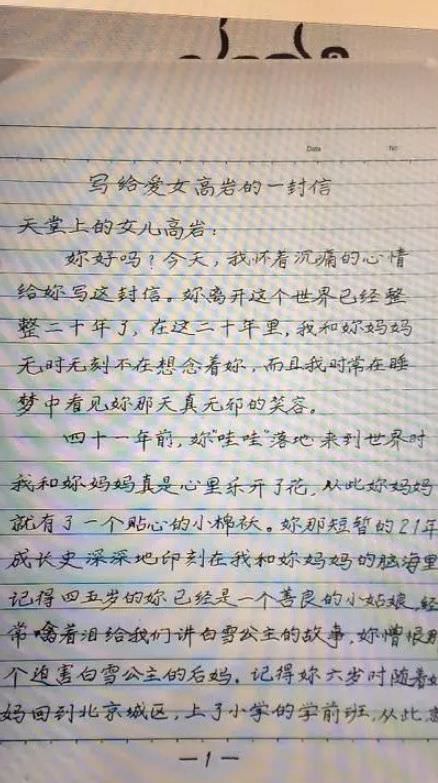 Date No
写给爱女高岩的一封信
天堂上的女儿高岩：
妳好吗？今天，我怀着沉痛的心情
给妳写这封信。妳离开这个世界已经整
整二十年了，在这二十年里，我和妳妈妈
无时无刻不在想念着妳，而且我时常在睡
梦中看见妳那天真无邪的笑容。
四十一年前，妳"哇哇"落地来到世界时
我和妳妈妈真是心里乐开了花，从此妳妈妈
就有了一个贴心的小棉袄。妳那短暂的21年
成长史深深地印刻在我和妳妈妈的脑海里
记得四五岁的妳已经是一个善良的小姑娘，经
常噙着泪给我们讲白雪公主的故事，妳憎恨那
个迫害白雪公主的后妈。记得妳六岁时随着
妈回到北京城区，上了小学的学前班，从此，
—1—